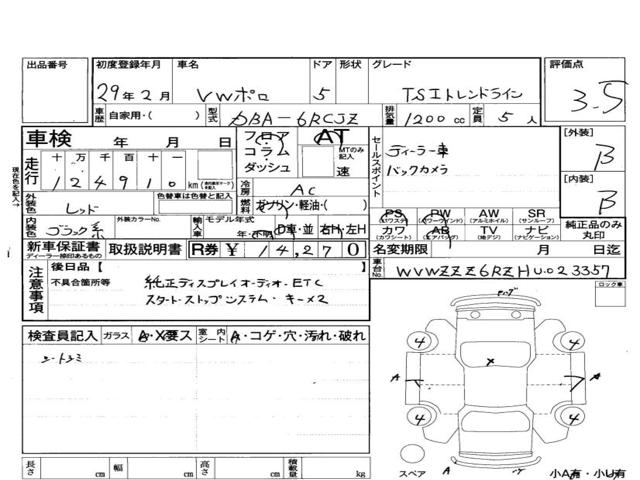 出品番号 初度登録年月 車名 ドア 形状 グレード 評価点
29年2月 VWポロ 5 TSIトレンドライン 3.5
車歴 自家用・( ) 型式 DBA-6RCJZ 排気量 1200 cc 定員 5 人
車検 年 月 日 フロア コラム ダッシュ AT MTのみ記入 速 セールスポイント ディーラー車 [外装] B
バックカメラ
走行 十 万 千 百 十 一
1 2 4 9 1 0 km 冷房 AC [内装] B
外装色 レッド 色替車は色替と記入 燃料 ガソリン・軽油・( )
PS (パワステ) PW (パワーウインド) AW (アルミホイル) SR (サンルーフ)
カワ (カワシート) AB (エアバッグ) TV (地デジ) ナビ (ナビゲーション) 純正品のみ丸印
内装色 ブラック系 外装カラーNo. 輸入車 モデル年式 年・不明 D車・並 右H・左H
新車保証書 ディーラー捺印あるもの 取扱説明書 R券 ¥ 14,270 名変期限 月 日迄
注意事項 後日品【 】 車台No. WVWZZZ6RZHU023357
不具合箇所等 純正ディスプレイオーディオ・ETC
スタートストップシステム・キー×2
ロック車
検査員記入 ガラス A・X要ス 室内シート A・コゲ・穴・汚れ・破れ
4 4
A A
4 4
スペア A
長さ cm 幅 cm 高さ cm 積載量 kg 小A有・小U有
現在色を記入→